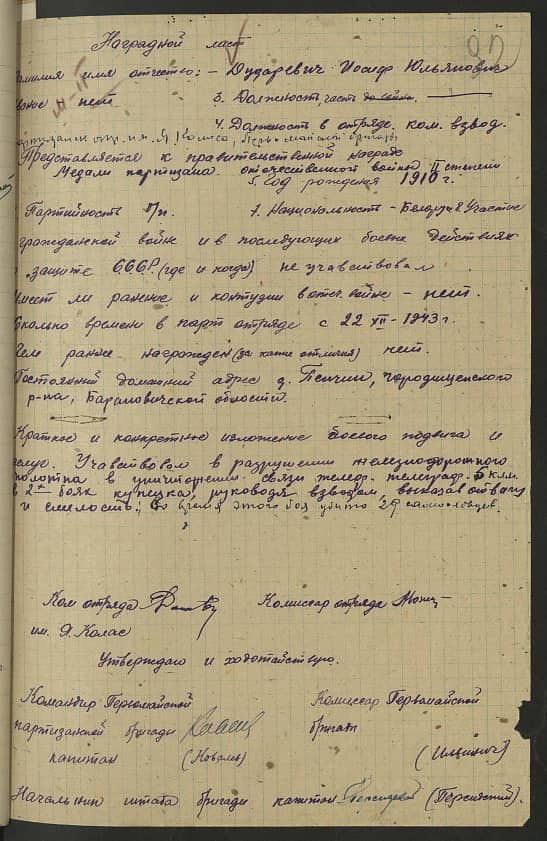 Наградной лист
амилия имя отчество: – Дударевич Иосиф Юльянович
вание нет 3. Должность, часть
4. Должность в отряде ком. взвод.
партизанск. отр. им. Я. Коласа, Первомайской бригады
Представляется к правительственной награде
Медали партизана отечественной войны II степени
5. Год рождения 1910 г.
Партийность б/п. 7. Национальность – Белорус 8. Участие
гражданской войне и в последующих боевых действиях
защите СССР (где и когда) не учавствовал
Имеет ли ранение и контузии в отеч. войне – нет.
Сколько времени в парт отряде с 22 XII – 1943 г.
Чем ранее награжден (за какие отличия) нет.
Постоянный домашний адрес д. Городищенского
р-на, Барановичской области.
Краткое и конкретное изложение боевого подвига и
заслуг. Учавствовал в разрушении железнодорожного
полотна в уничтожении связи телегр. 5 клм.
в 2х боях руководя взводом, выказал отвагу
и смелость; Во время этого боя убито
Ком отряда Комиссар отряда
им. Я. Колас
Утверждаю и ходотайствую.
Командир Первомайской Комиссар Первомайской
партизанской бригады бригады
капитан (Ковалев)
Начальник штаба бригады капитан (Персидский).